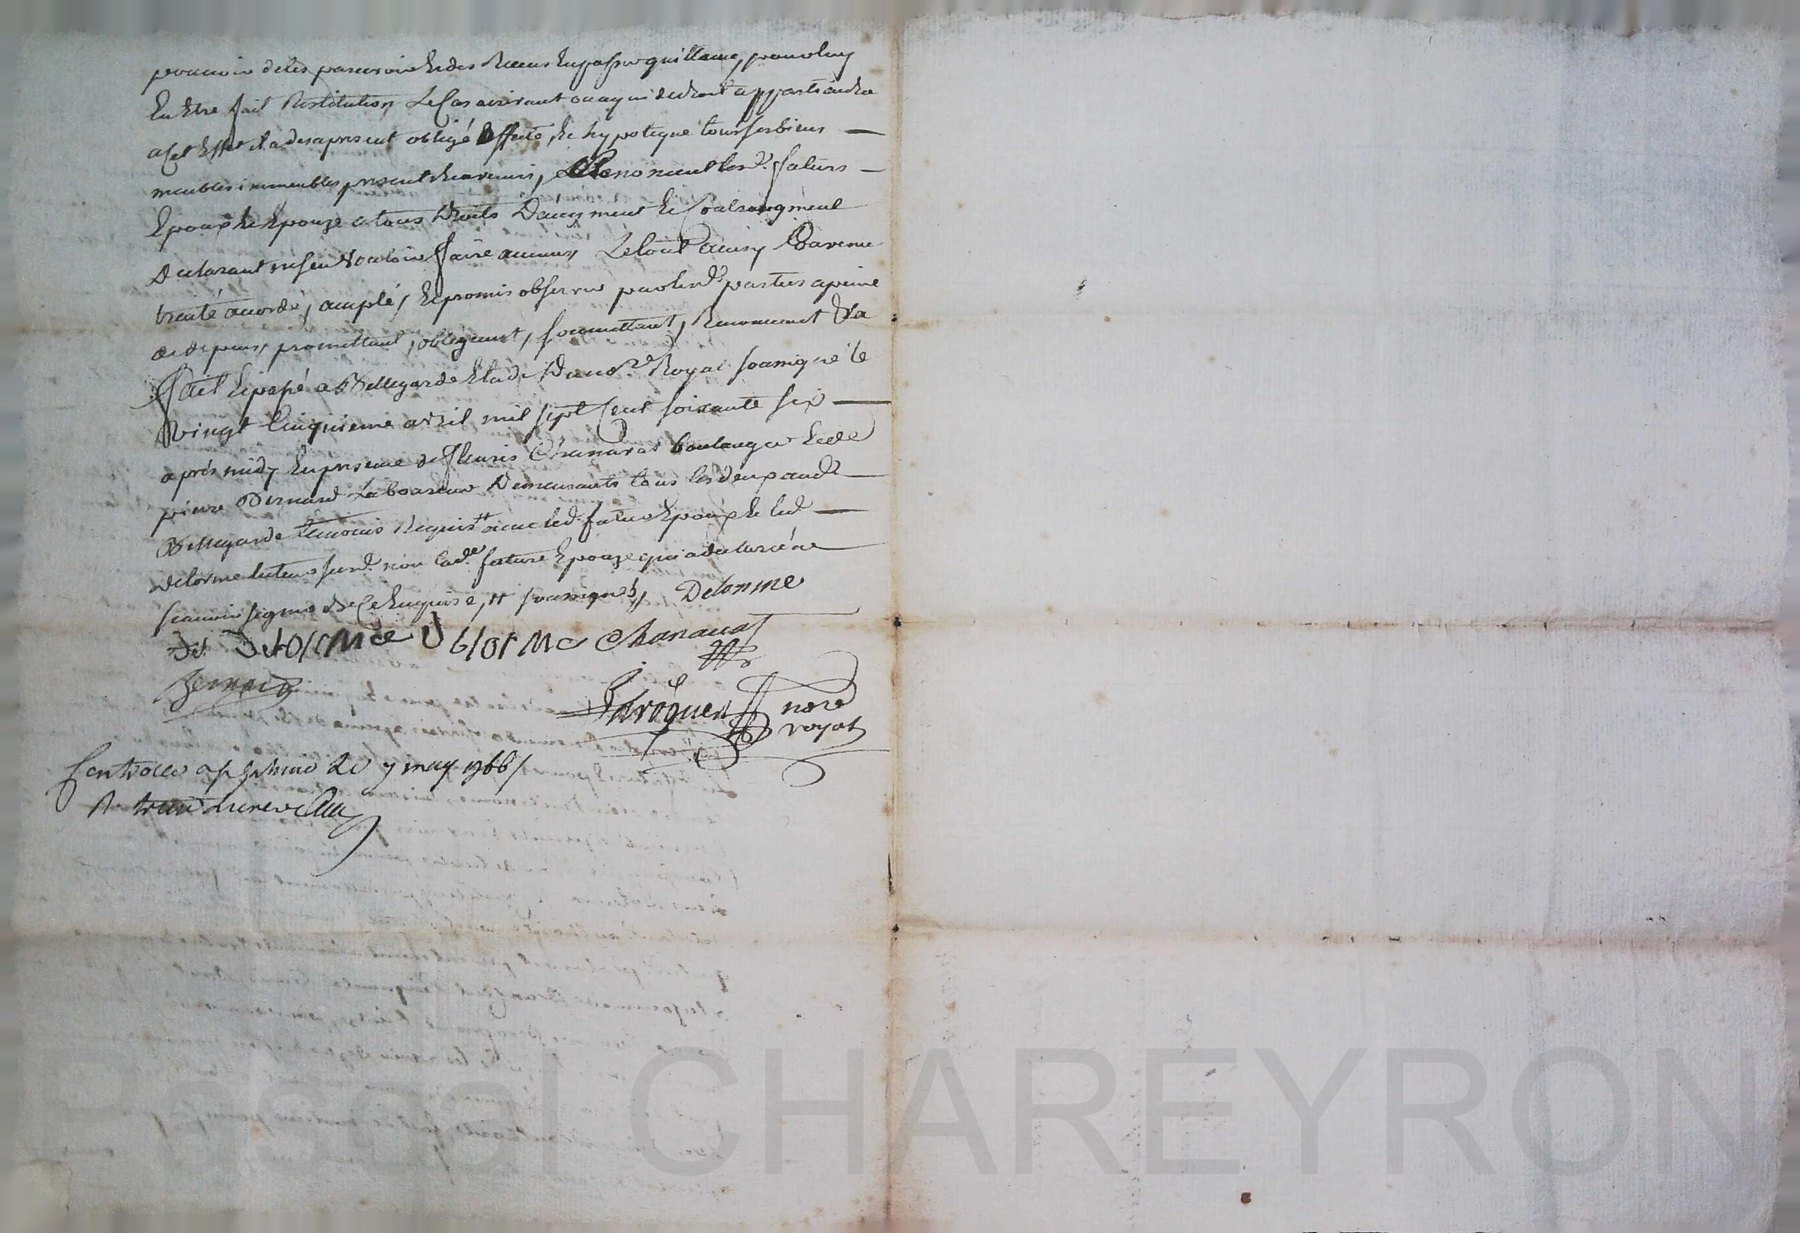 pouvoir de les parcevoir et des Receus en passer quillance, pour luy
En Etre fait Restitution Le Cas arrivant ou a qui de droit appartiendra
a Cet Effet il a des apresent obligé affecté, et hypoteque tous ses biens
meubles immeubles present et avenirs, Renonceent lesd. futurs
Epoux et Epouze a tous droits D'augment et Contraugment
declarant n'en vouloir faire aucuns Le tout ainsy Convenu
traité accordé, accepté, et promis observer par lesd. parties a peine
de depens, promettant, obligeant, soumettant, Renonceant &a
fait et passé a Bellegarde Etude Du no.re Royal soussigné le
vingt Cinquieme avril mil sept Cent soixante six
apres midy En presence de fleuris Chanavat boulanger et de
pierre Bernard Laboureur Demeurants tous les deux aud.
Bellegarde temoins Requis et avec led. futur Epoux et led.
delorme tuteur susd. non lad.e future Epouze qui a declaré ne
scavoir signer de Ce Enquise, et soussignés, Delorme
De Lorme Chanavat
Bernard
not.re
royal
Controllé a St Galmier le 7 may 1766